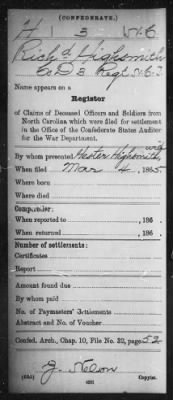 (CONFEDERATE.)
H 3 N.C.
Rich'd Highsmith
Co. D 3 Regt N.C.
Name appears on a
Register
of Claims of Deceased Officers and Soldiers from
North Carolina which were filed for settlement
in the Office of the Confederate States Auditor
for the War Department.
By whom presented Hester Highsmith, wid
When filed Mar 4, 1865
Where born
Where died
Comptroller:
When reported to , 186 .
When returned , 186 .
Number of settlements:
Certificates
Report
Amount found due
By whom paid
No. of Paymasters' Settlements
Abstract and No. of Voucher
Confed. Arch., Chap. 10, File No. 32, page 52
Copyist.